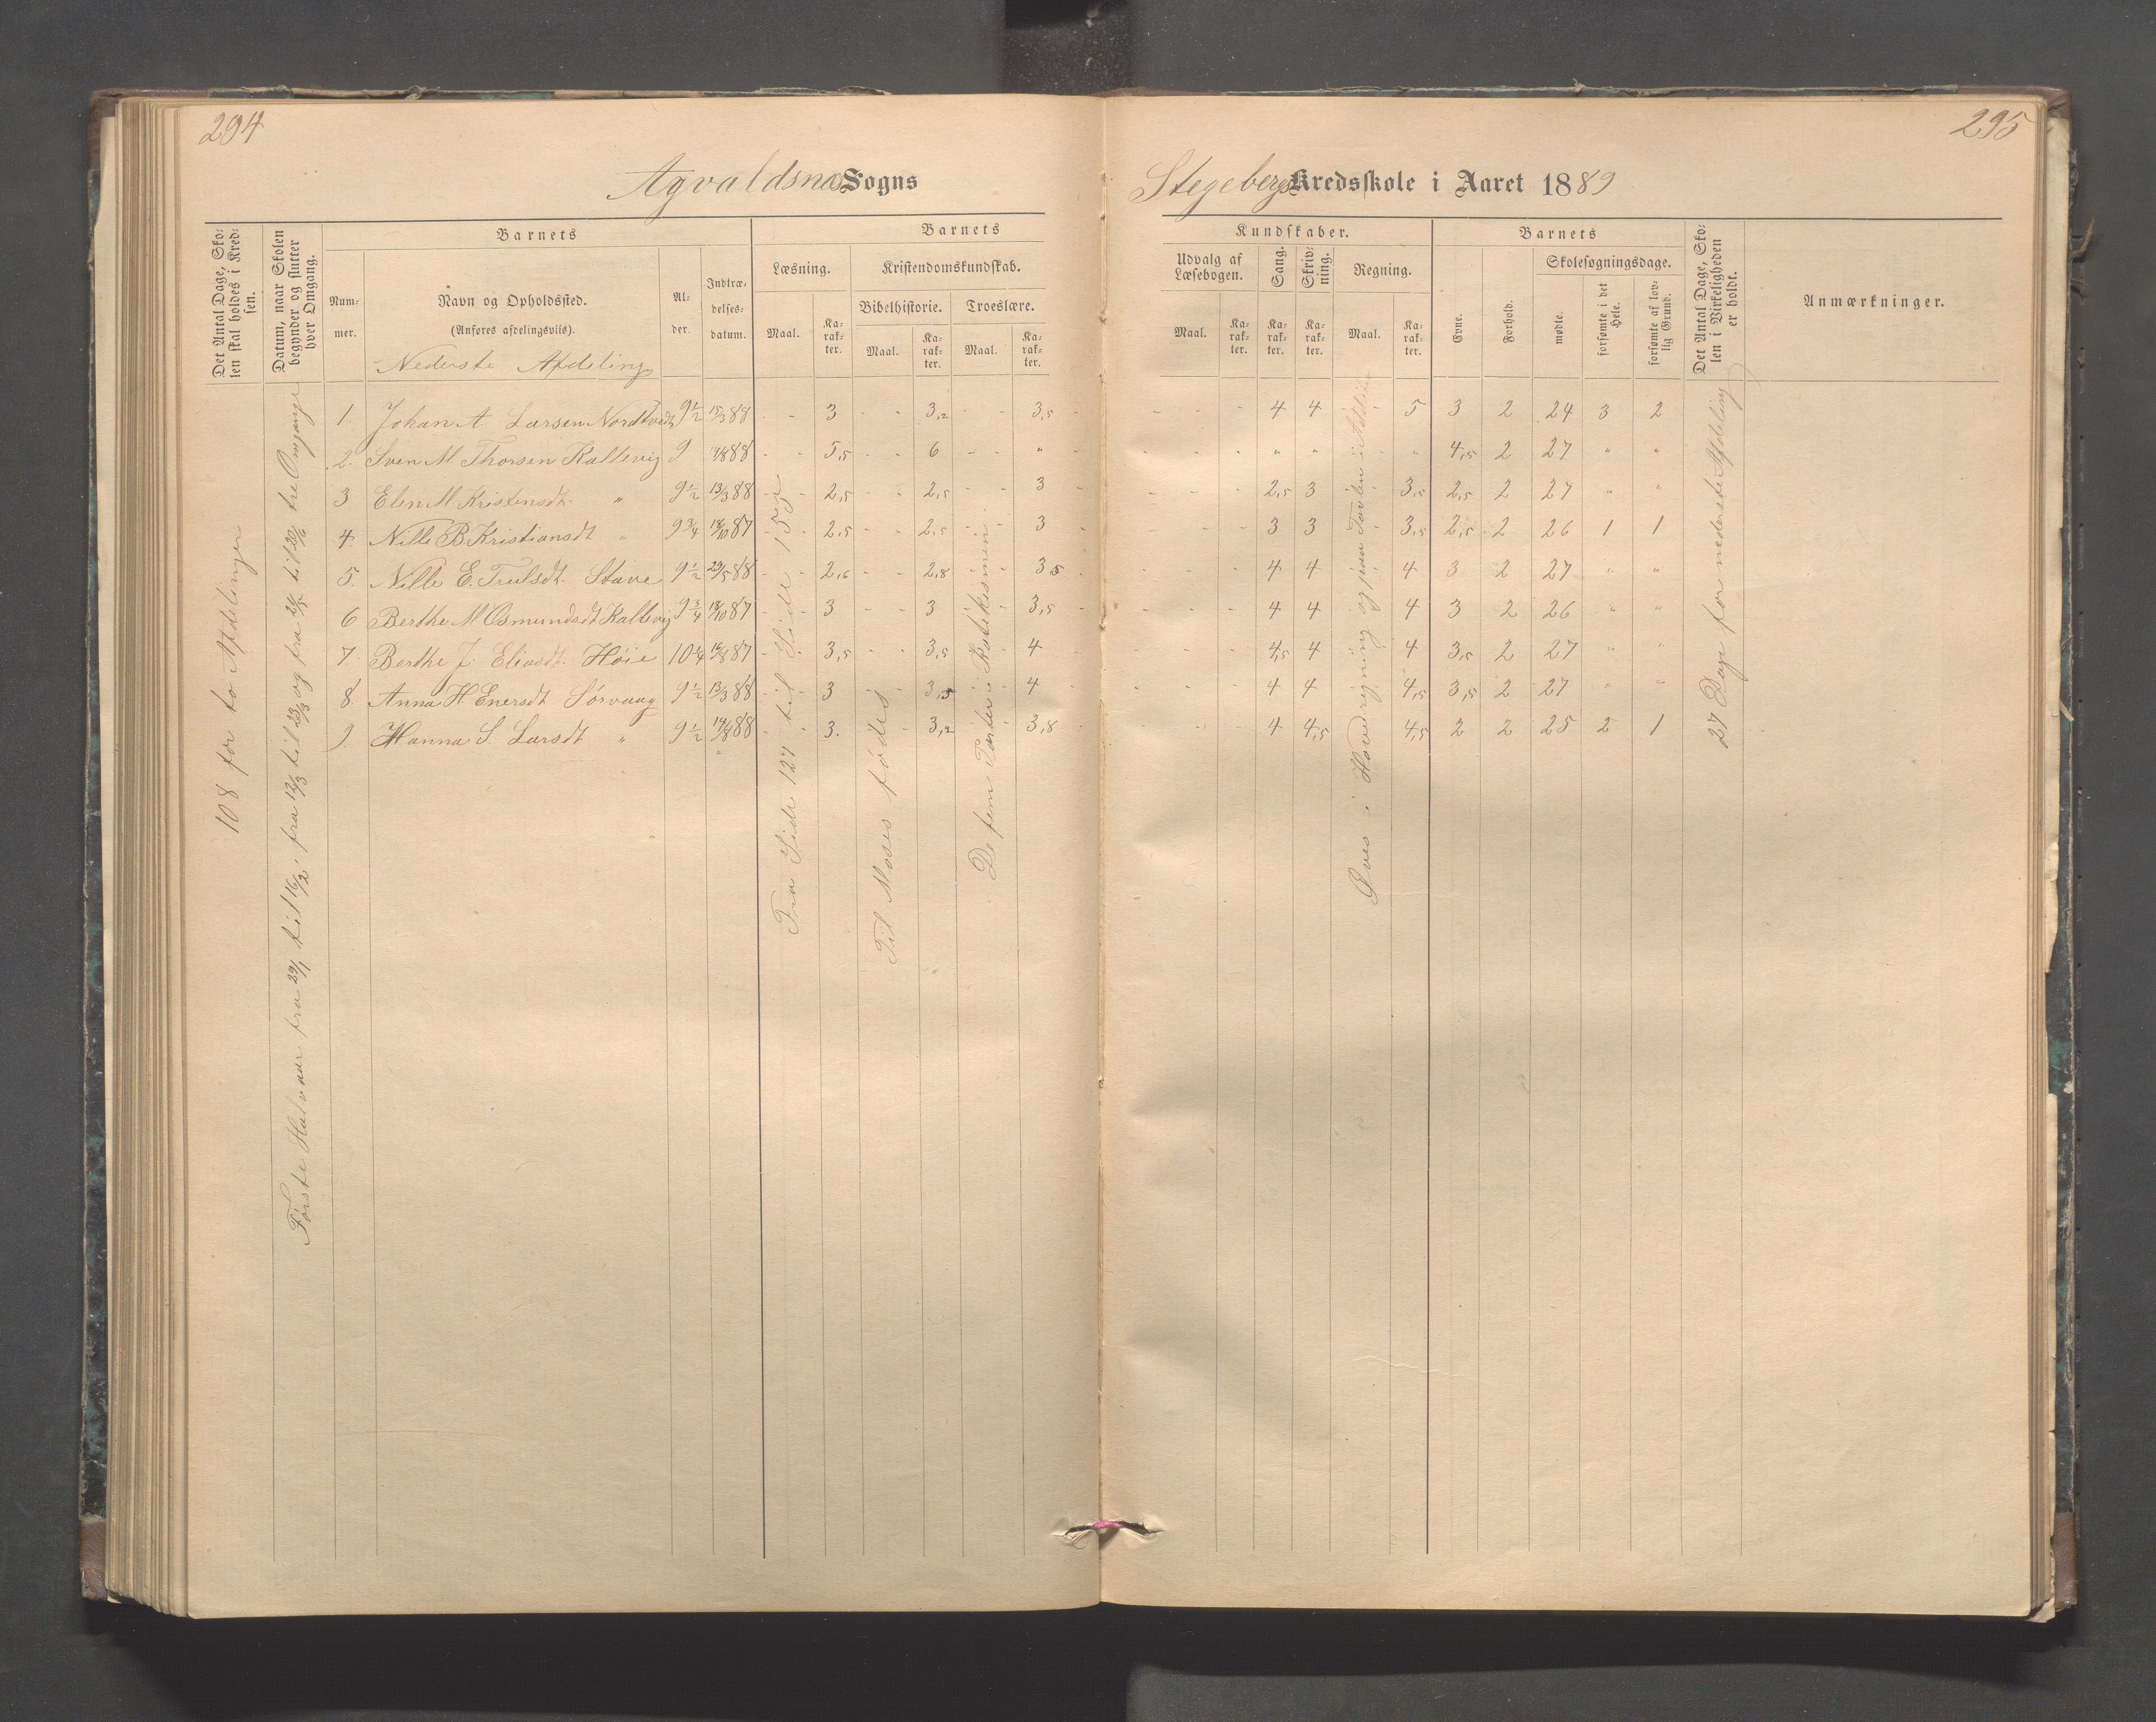 294
295
Agvaldsnæs Sogns
Stegebergs Kredsskole i Aaret 1889
Det Antal Dage, Skolen skal holdes i Kredsen.
Datum, naar Skolen begynder og slutter hver Omgang.
Barnets
Nummer.
Navn og Opholdssted.
(Anføres afdelingsviis).
Nederste Afdeling
Alder.
Indtrædelsesdatum.
Barnets
Læsning.
Maal.
Karakter.
Kristendomskundskab.
Bibelhistorie.
Maal.
Karakter.
Troeslære.
Maal.
Karakter.
Kundskaber.
Udvalg af Læsebogen.
Maal.
Karakter.
Sang.
Karakter.
Skrivning.
Karakter.
Regning.
Maal.
Karakter.
Barnets
Evne.
Forhold.
Skolesøgningsdage.
mødte.
forsømte i det Hele.
forsømte af lovlig Grund.
Det Antal Dage, Skolen i Virkeligheden er holdt.
Anmærkninger.
108 for to Afdelinger
Første Halvaar fra 29/1 til 16/2, fra 12/3 til 23/3 og fra 21/5 til 20/6 tre Omgange
1 Johan A Larsen Nordtvedt 9 1/2 15/3 88 - - 3 - - 3,2 - - 3,5 - - - - 4 4 5 3 2 24 3 2
2. Sven M. Thorsen Kallevig 9 88 - - 5,5 - - 6 - - " - - - - " " " 4,5 2 27 " "
3 Elen M Kristensdt. " 9 1/2 13/3 88 - - 2,5 - - 2,5 - - 3 - - - - 2,5 3 3,5 2,5 2 27 " "
4. Nille B. Kristiansdt " 9 3/4 18/10 87 - - 2,5 - - 2,5 - - 3 - - - 3 3 3,5 2,5 2 26 1 1
5. Nille E. Trulsdt. Stave 9 1/2 29/5 88 - - 2,6 - - 2,8 - - 3,5 - - - - 4 4 4 3 2 27 " "
6 Berthe M Osmundsdt Kallevig 9 3/4 18/10 87 - - 3 - - 3 - - 3,5 - - - - 4 4 4 3 2 26 " "
7. Berthe J. Eliasdt. Høie 10 1/4 87 - - 3,5 - - 3,5 - - 4 - - - - 4,5 4 4 3,5 2 27 " "
8 Anna H Enersdt Sørvaag 9 1/2 13/3 88 - - 3 - - 3,5 - - 4 - - - - 4 4 4,5 3,5 2 27 " "
9. Hanna S. Larsdt " 9 1/2 88 - - 3. - - 3,2 - - 3,8 - - - - 4 4,5 4,5 2 2 25 2 1
Fra Side 127 til Side 155
Til Moses fødes
De fem Parter i Katekismen
Øves i Hovedregning og paa Tavlen i Addition
27 Dage for nederste Afdeling